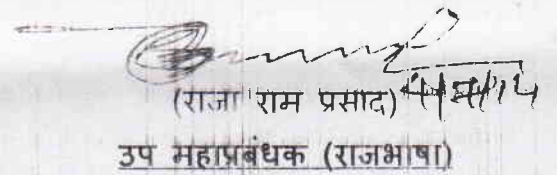 (राजा राम प्रसाद)
उप महाप्रबंधक (राजभाषा)